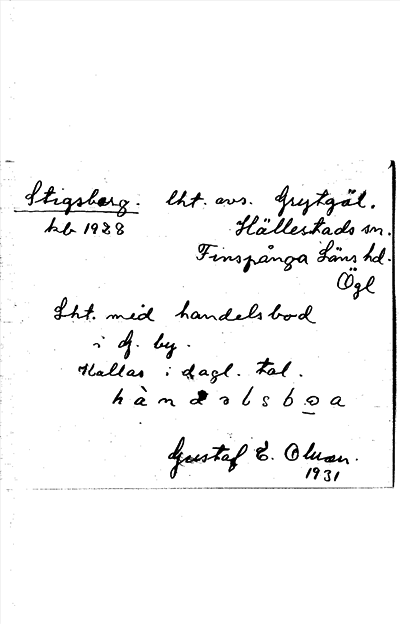 Stigsberg. lht. avs. Grytgöl.
kb 1928 Hällestads sn.
Finspånga Läns hd.
Ögl
Lht. med handelsbod
i G. by.
Kallas i dagl. tal.
h à n d ə l s b o a
Gustaf E. Olsson.
1931